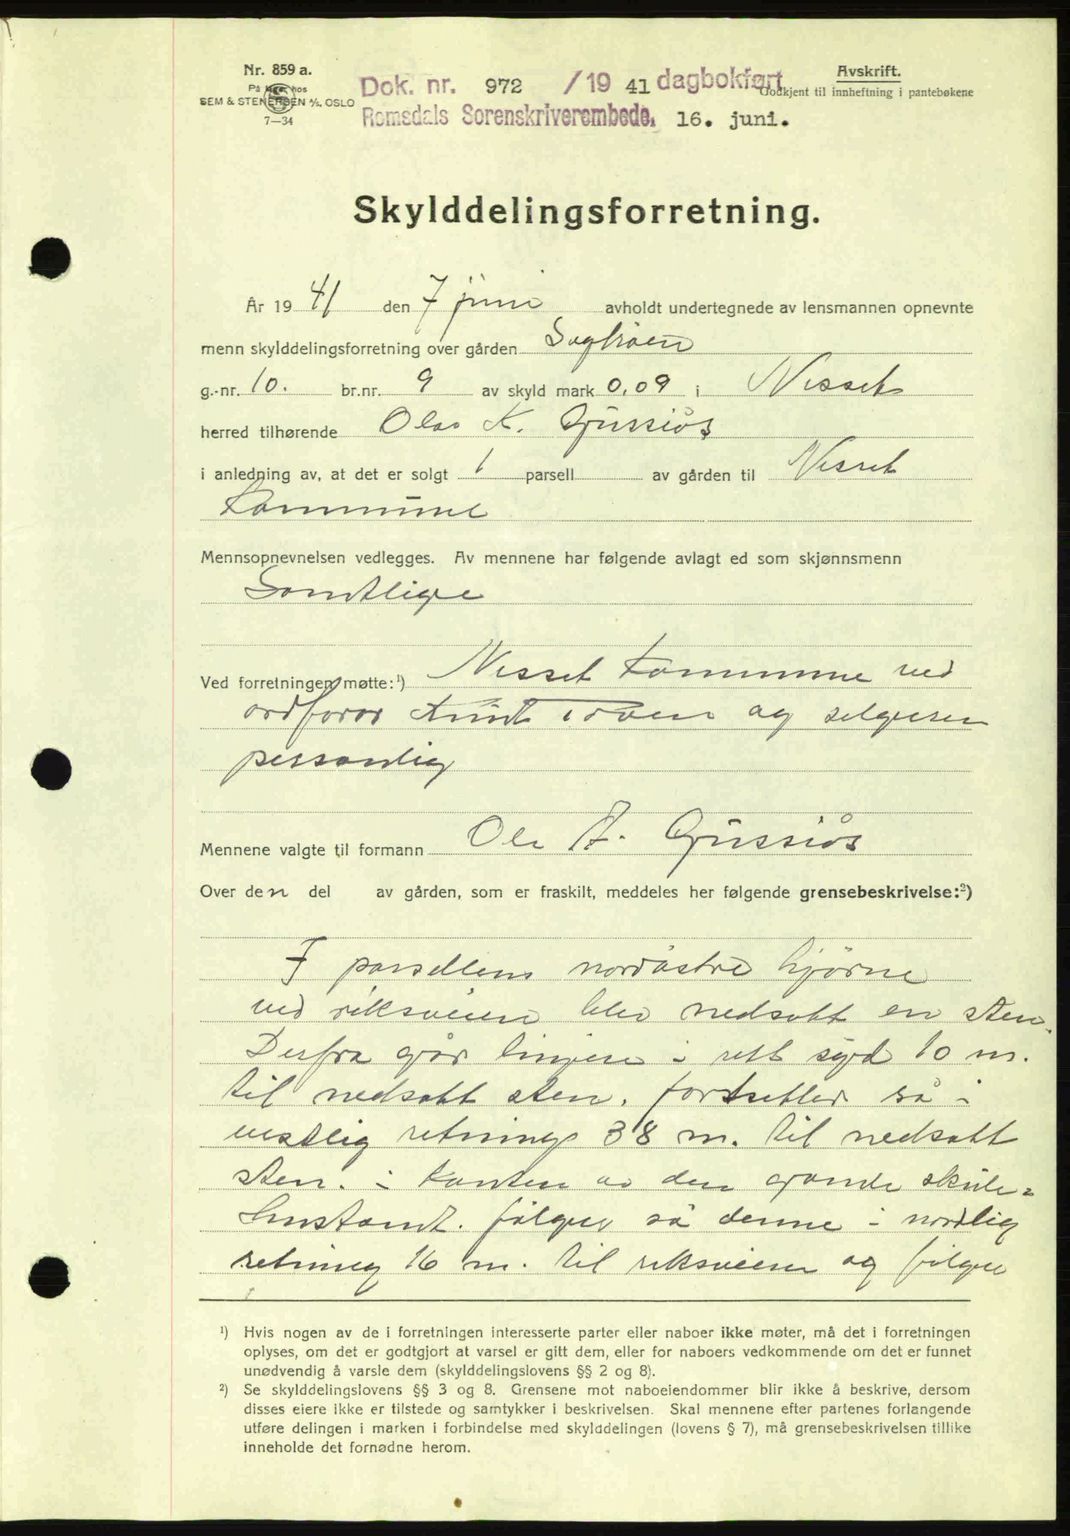 Nr. 859 a.
På lager hos
SEM & STENERSEN A/S, OSLO
7—34
Dok. nr. 972 /19 41 dagbokført
Romsdals Sorenskriverembede, 16. juni.
Avskrift.
Godkjent til innheftning i pantebøkene
Skylddelingsforretning.
År 19 41 den 7 juni avholdt undertegnede av lensmannen opnevnte
menn skylddelingsforretning over gården
g.-nr. 10. br.nr. 9 av skyld mark 0,09 i Nesset
herred tilhørende Olav K. Gussiås
i anledning av, at det er solgt 1 parsell av gården til Nesset
Kommune
Mennsopnevnelsen vedlegges. Av mennene har følgende avlagt ed som skjønnsmenn
Samtlige
Ved forretningen møtte:¹) Nesset Kommune ved
ordfører Knut Toven og selgeren
personlig
Mennene valgte til formann Ole A. Gussiås
Over den del av gården, som er fraskilt, meddeles her følgende grensebeskrivelse:²)
I parsellens nordøstre hjørne
ved riksveien blev nedsatt en sten.
Derfra går linjen i rett syd 10 m.
til nedsatt sten. fortsetter så i
vestlig retning 38 m. til nedsatt
sten. i kanten av den gamle skule=
hustomt. følger så denne i nordlig
retning 16 m. til riksveien og følger
¹) Hvis nogen av de i forretningen interesserte parter eller naboer ikke møter, må det i forretningen
oplyses, om det er godtgjort at varsel er gitt dem, eller for naboers vedkommende om det er funnet
unødvendig å varsle dem (skylddelingslovens §§ 2 og 8).
²) Se skylddelingslovens §§ 3 og 8. Grensene mot naboeiendommer blir ikke å beskrive, dersom
disses eiere ikke er tilstede og samtykker i beskrivelsen. Skal mennene efter partenes forlangende
utføre delingen i marken i forbindelse med skylddelingen (lovens § 7), må grensebeskrivelsen tillike
inneholde det fornødne herom.